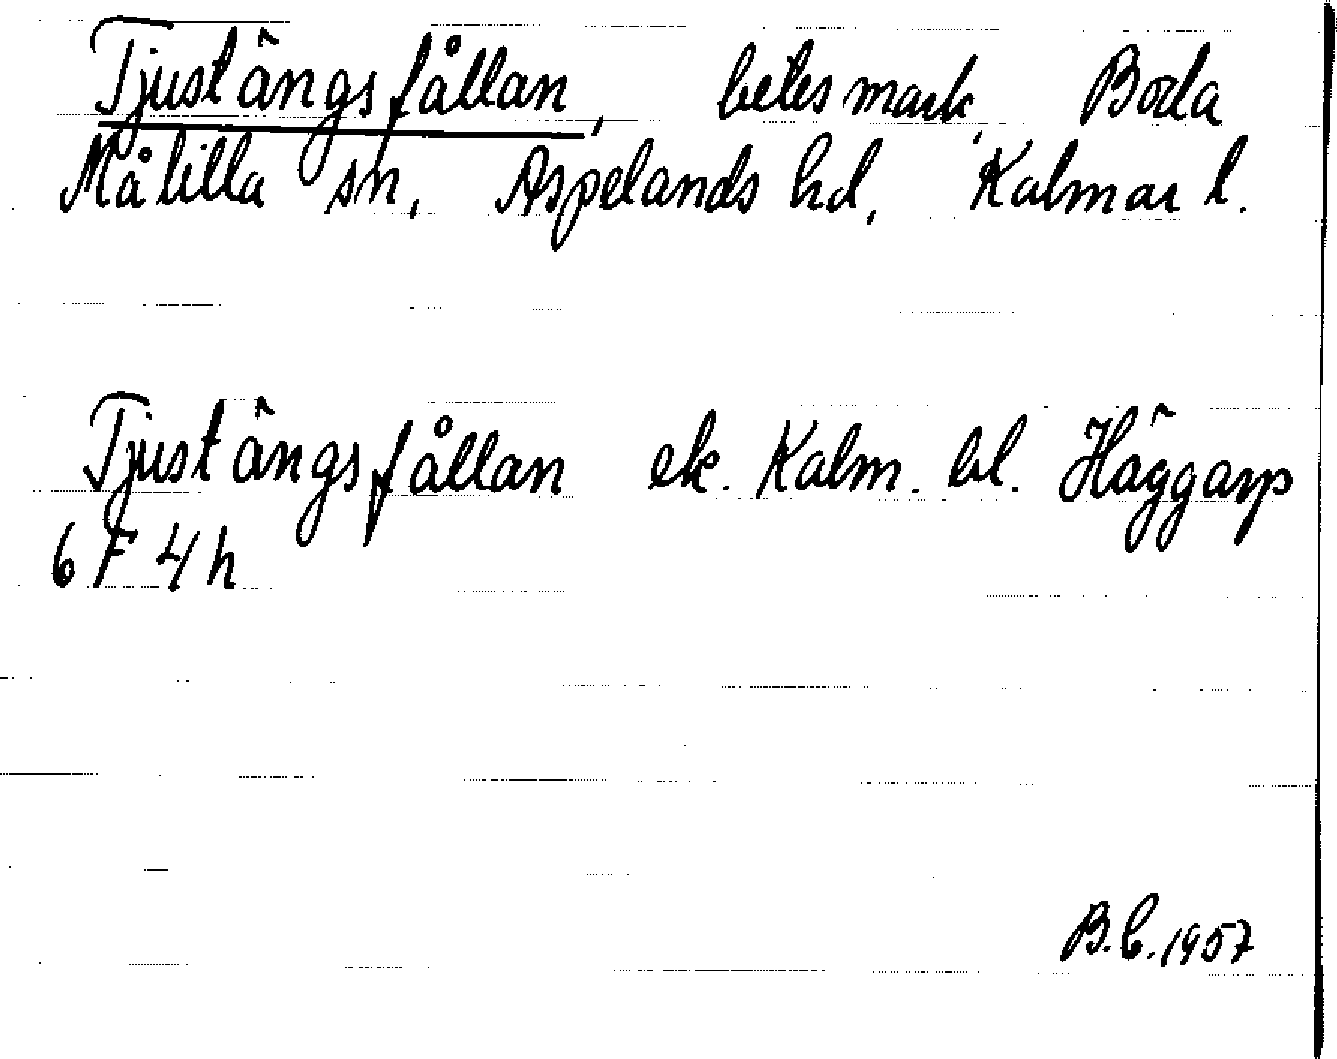 Tjustängsfållan, betesmark, Borla
Målilla sn, Aspelands hd, Kalmar l.
Tjustängsfållan ek. Kalm. bl. Häggarp
6 F 4 h
B.C. 1957